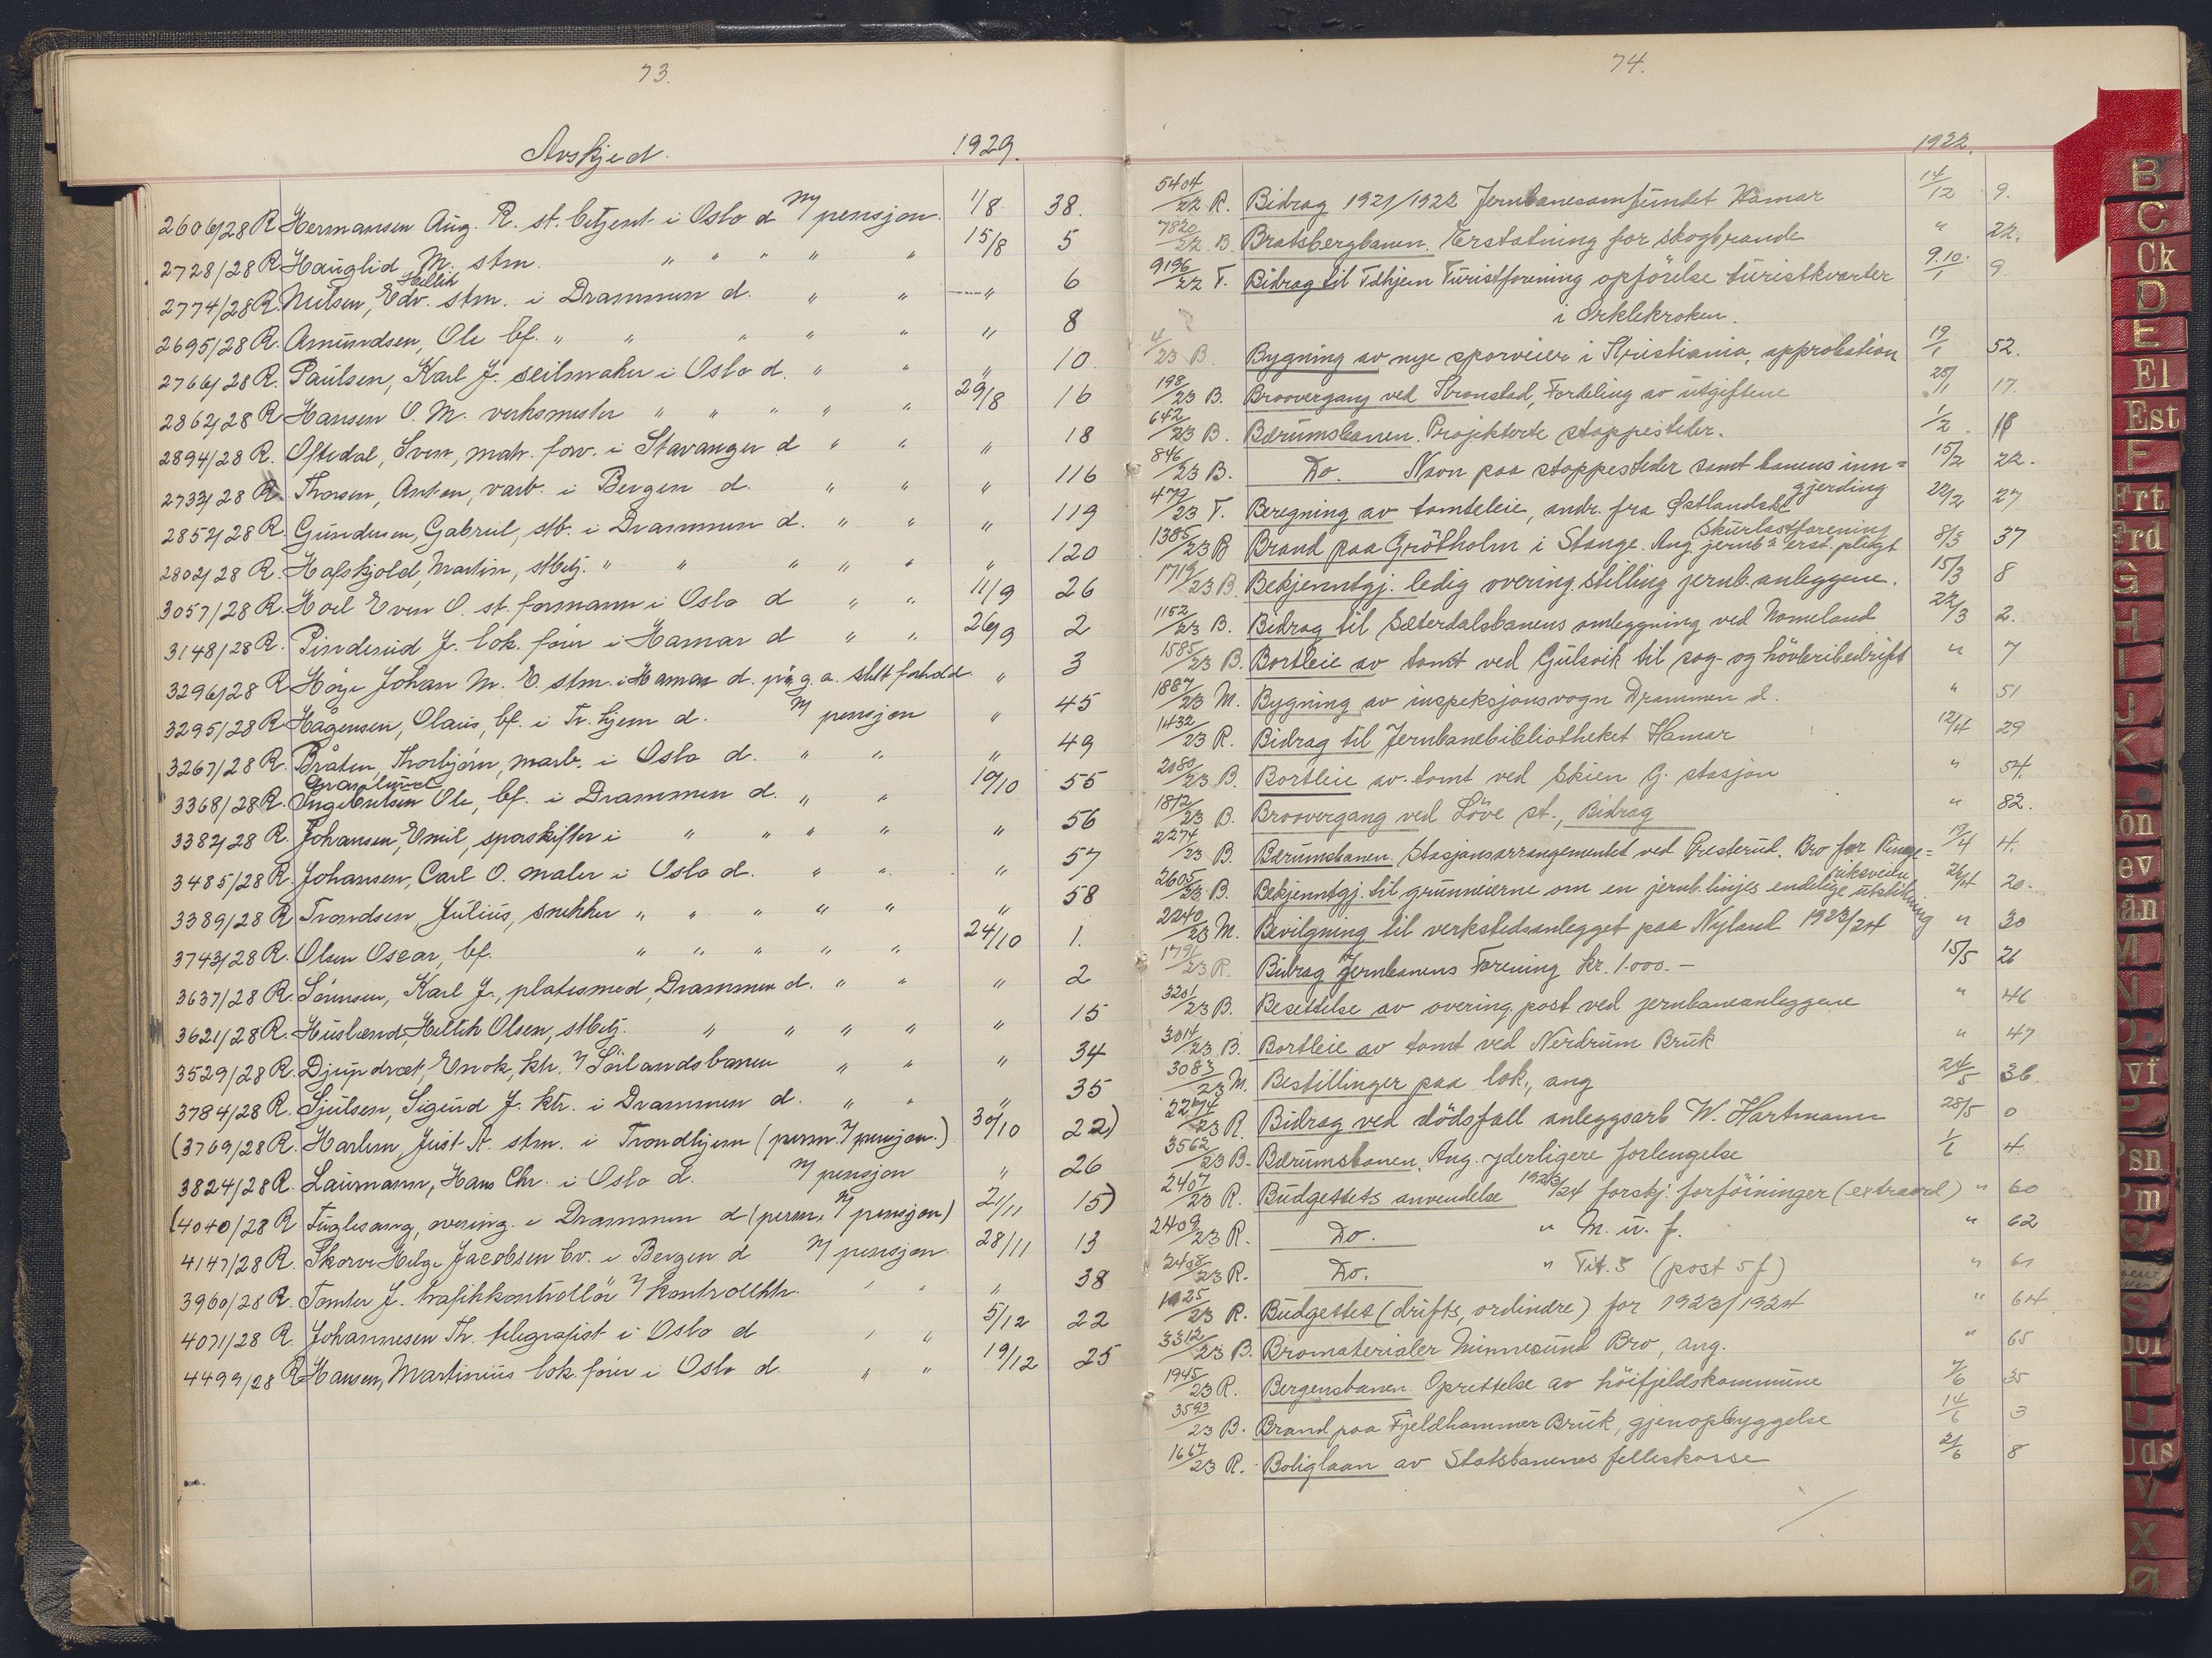 73.
Avskjed. 1929.
2606/28 R. Hermansen Aug. R. st. betjent i Oslo d m/ pensjon. 1/8 38.
2728/28 R. Hauglid, M. stm. " " " " " 15/8 5
2774/28 R. Nilsen, Hellik Edv. stm. i Drammen d. " " —"— 6
2695/28 R. Amundsen, Ole bf. " " " " " " 8
2766/28 R. Paulsen, Karl J. seilmaker i Oslo d. " " " 10
2862/28 R. Hansen O. M. verksmester " " " " " 29/8 16
2894/28 R. Oftedal, Sven, matr. forv. i Stavanger d " " " 18
2733/28 R. Thorsen, Anton, varb. i Bergen d. " " " 116
2852/28 R. Gundersen, Gabriel, stb. i Drammen d. " " " 119
2802/28 R. Hafskjold, Martin, stbtj. " " " " " " 120
3057/28 R. Hoel Even O. st. formann i Oslo d " " 11/9 26
3148/28 R. Pinderud J. lok. fører i Hamar d " " 26/9 2
3296/28 R. Høye Johan M. E. stm. i Hamar d. på g. a. slett forhold. " 3
3295/28 R. Hågensen, Olaus, bf. i Tr. hjem d. m/ pensjon " 45
3267/28 R. Bråten, Thorbjørn, marb. i Oslo d. " " " 49
Granlund
3368/28 R. Ingebretsen Ole, bf. i Drammen d. " " 19/10 55
3382/28 R. Johansen, Emil, sporskifter i " " " " " 56
3485/28 R. Johansen, Carl O. maler i Oslo d. " " " 57
3389/28 R. Trondsen, Julius, snekker " " " " " " 58
3743/28 R. Olsen Oscar, bf. " " " " " 24/10 1.
3637/28 R. Sørensen, Karl J., platesmed, Drammen d. " " " 2
3621/28 R. Husland, Hellik Olsen, stbtj. " " " " " 15
3529/28 R. Djupdræt, Enok, ktr. v/ Sørlandsbanen " " " 34
3784/28 R. Sjulsen, Sigurd J. ktr. i Drammen d. " " " 35
(3769/28 R. Harlem, Just A. stm. i Trondhjem (perm. m/ pensjon.) 30/10 22)
3824/28 R. Laumann, Hans Chr. i Oslo d. m/ pensjon " 26
(4040/28 R Fuglesang, overing. i Drammen d (perm. m/ pensjon) 21/11 15)
4147/28 R. Skorve Helge Jacobsen bv. i Bergen d m/ pensjon. 28/11 13
3960/28 R. Tomter J. trafikkontrollør v/ kontrollktr. " " " 38
4071/28 R. Johannesen Th. telegrafist i Oslo d " " 5/12 22
4499/28 R Hansen, Martinius lok. fører i Oslo d. " " 19/12 25
74.
1922.
5404/22 R. Bidrag 1921/1922 Jernbanesamfundet Hamar 14/12 9.
7820/22 B. Bratsbergbanen. Erstatning for skogbrande " 22.
9196/22 T. Bidrag til Tdhjem Turistforening opførelse turistkvarter 9.10./1 9
i Orklekroken.
4/23 B. Bygning av nye sporveier i Kristiania, approbation 19/1 52.
198/23 B. Broovergang ved Kronstad, Fordeling av utgiftene 25/1 17.
642/23 B. Bærumsbanen. Projekterte stoppesteder. 1/2 18
846/23 B. Do. Navn paa stoppesteder samt banens inn=gjerding 15/2 22.
479/23 T. Beregning av tomteleie, andr. fra Østlandske Skurlastforening 22/2 27
1385/23 B Brand paa Grøtholm i Stange. Ang. jernb.s erst. pligt 8/3 37
1719/23 B. Bekjenntgj. ledig overing. stilling jernb. anleggene. 15/3 8
1152/23 B. Bidrag til Sæterdalsbanens omleggning ved Nomeland 22/3 2.
1585/23 B. Bortleie av tomt ved Gulsvik til sag- og høvleribedrift " 7
1887/23 M. Bygning av inspeksjonsvogn Drammen d. " 51
1432/23 R. Bidrag til Jernbanebibliotheket Hamar 12/4 29
2080/23 B. Bortleie av tomt ved Skien G. stasjon " 54.
1812/23 B. Broovergang ved Løve st., Bidrag " 82.
2274/23 B. Bærumsbanen. Stasjonsarrangementet ved Gresterud. Bro for Ringe=riksveien 19/4 4.
2605/23 B. Bekjenntgj. til grunneierne om en jernb.linjes endelige utstikning 26/4 20.
2240/23 M. Bevilgning til verkstedsanlegget paa Nyland 1923/24 " 30
1791/23 R. Bidrag Jernbanens Forening kr. 1.000.- 15/5 26
3201/23 B. Besettelse av overing. post ved jernbaneanleggene " 46
3014/23 B. Bortleie av tomt ved Nerdrum Bruk " 47
3083/23 M. Bestillinger paa lok., ang 24/5 36.
2274/23 R. Bidrag ved dødsfall anleggsarb W. Hartmann 28/5 0
3562/23 B. Bærumsbanen. Ang. yderligere forlengelse 1/6 4.
2407/23 R. Budgettets anvendelse 1923/24 forskj. forføininger (extraord) " 60
2409/23 R. Do. " M. u. f. " 62
2408/23 R. Do. " Tit. 5 (post 5 f) " 61
1925/23 R. Budgettet (drifts, ordinære) for 1923/1924 " 64
3312/23 B. Bromaterialer Minnesund Bro, ang. " 65
1945/23 R. Bergensbanen. Oprettelse av høifjeldskommune 7/6 35
3593/23 B. Brand paa Fjeldhammer Bruk, gjenopbyggelse 14/6 3
1667/23 R. Boliglaan av Statsbanenes felleskasse 21/6 8
B
C
Ck
D
E
El
Est
F
Frt
G
H
I
J
K
M
N
O
vf
P
Psn
S
T
U
Uds
V
X
Ø